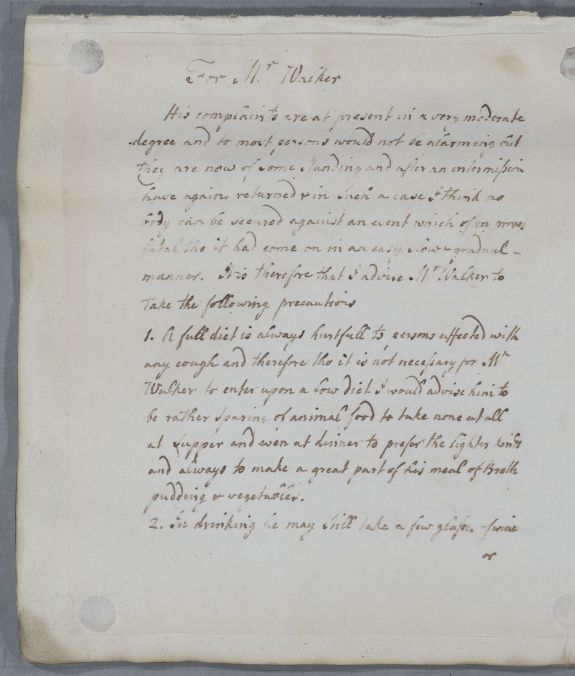 For Mr Walker
His complaints are at present in a very moderate
degree and to most persons would not be alarming but
they are now of some standing and after an intermission
have again returned & in such a case I think no
body can be secured against an event which often proves
fatal tho it had come on in an easy slow & gradual
manner. It is therefore that I advise Mr Walker to
take the following precautions
1. A full diet is always hurtfull to persons affected with
any cough and therefore tho it is not necessary for Mr
Walker to enter upon a low diet I would advise him to
be rather sparing of animal food to take none at all
at supper and even at dinner to prefer the lighter kinds
and always to make a great part of his meal of Broth
pudding & vegetables.
2. In drinking he may still take a few glasses of wine
or